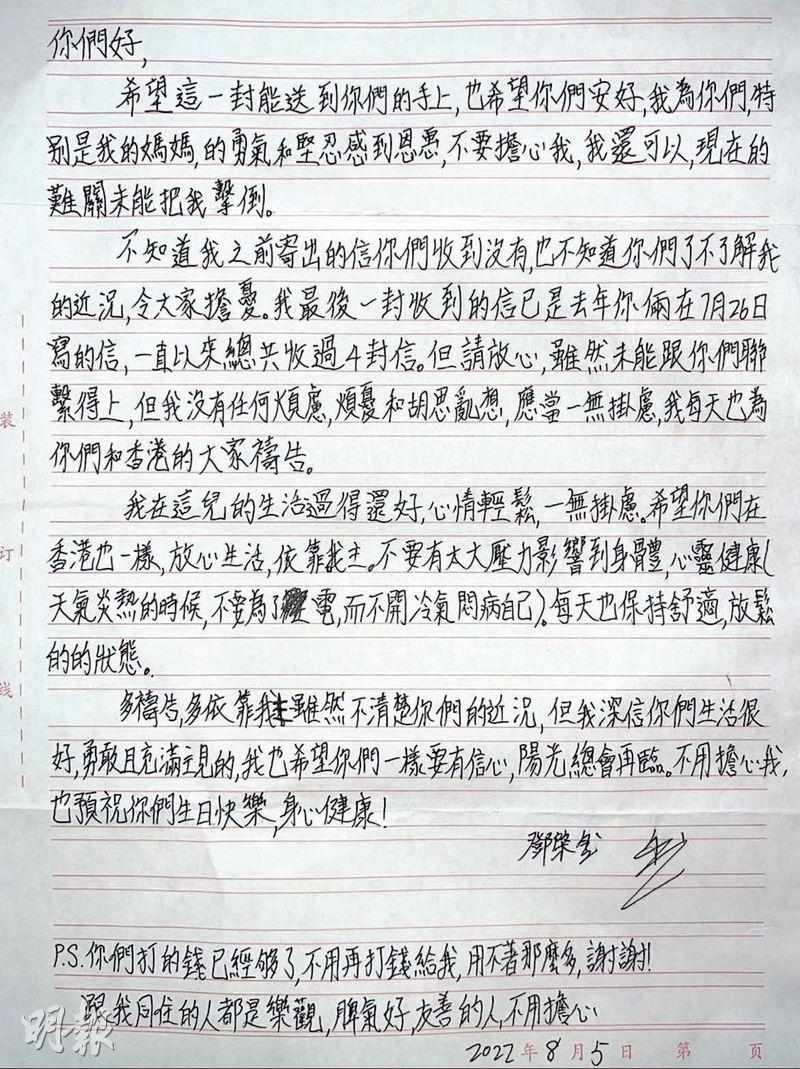 你們好,
希望這一封能送到你們的手上,也希望你們安好,我為你們,特
別是我的媽媽,的勇氣和堅忍感到恩惠,不要擔心我,我還可以,現在的
難關未能把我擊倒。
不知道我之前寄出的信你們收到沒有,也不知道你們了不了解我
的近況,令大家擔憂。我最後一封收到的信已是去年你倆在7月26日
寫的信,一直以來總共收過4封信。但請放心,雖然未能跟你們聯
繫得上,但我沒有任何煩慮,煩憂和胡思亂想,應當一無掛慮,我每天也為
你們和香港的大家禱告。
我在這兒的生活過得還好,心情輕鬆,一無掛慮。希望你們在
香港也一樣,放心生活,依靠我主。不要有太大壓力影響到身體,心靈健康(
天氣炎熱的時候,不要為了電,而不開冷氣悶病自己)。每天也保持舒適,放鬆
的的狀態。
多禱告,多依靠我主雖然不清楚你們的近況,但我深信你們生活很
好,勇敢且充滿主見的,我也希望你們一樣要有信心,陽光總會再臨。不用擔心我,
也預祝你們生日快樂,身心健康!
鄧棨然
P.S.你們打的錢已經够了,不用再打錢給我,用不著那麼多,謝謝!
跟我同住的人都是樂觀,脾氣好,友善的人,不用擔心
2022年8月5日 第 页
装
订
线
明報